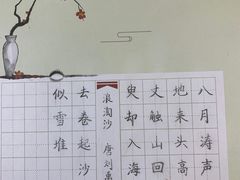 八月涛声
地来头高
丈触山回
臾却入海
浪淘沙 唐刘禹
去卷起沙
似雪堆